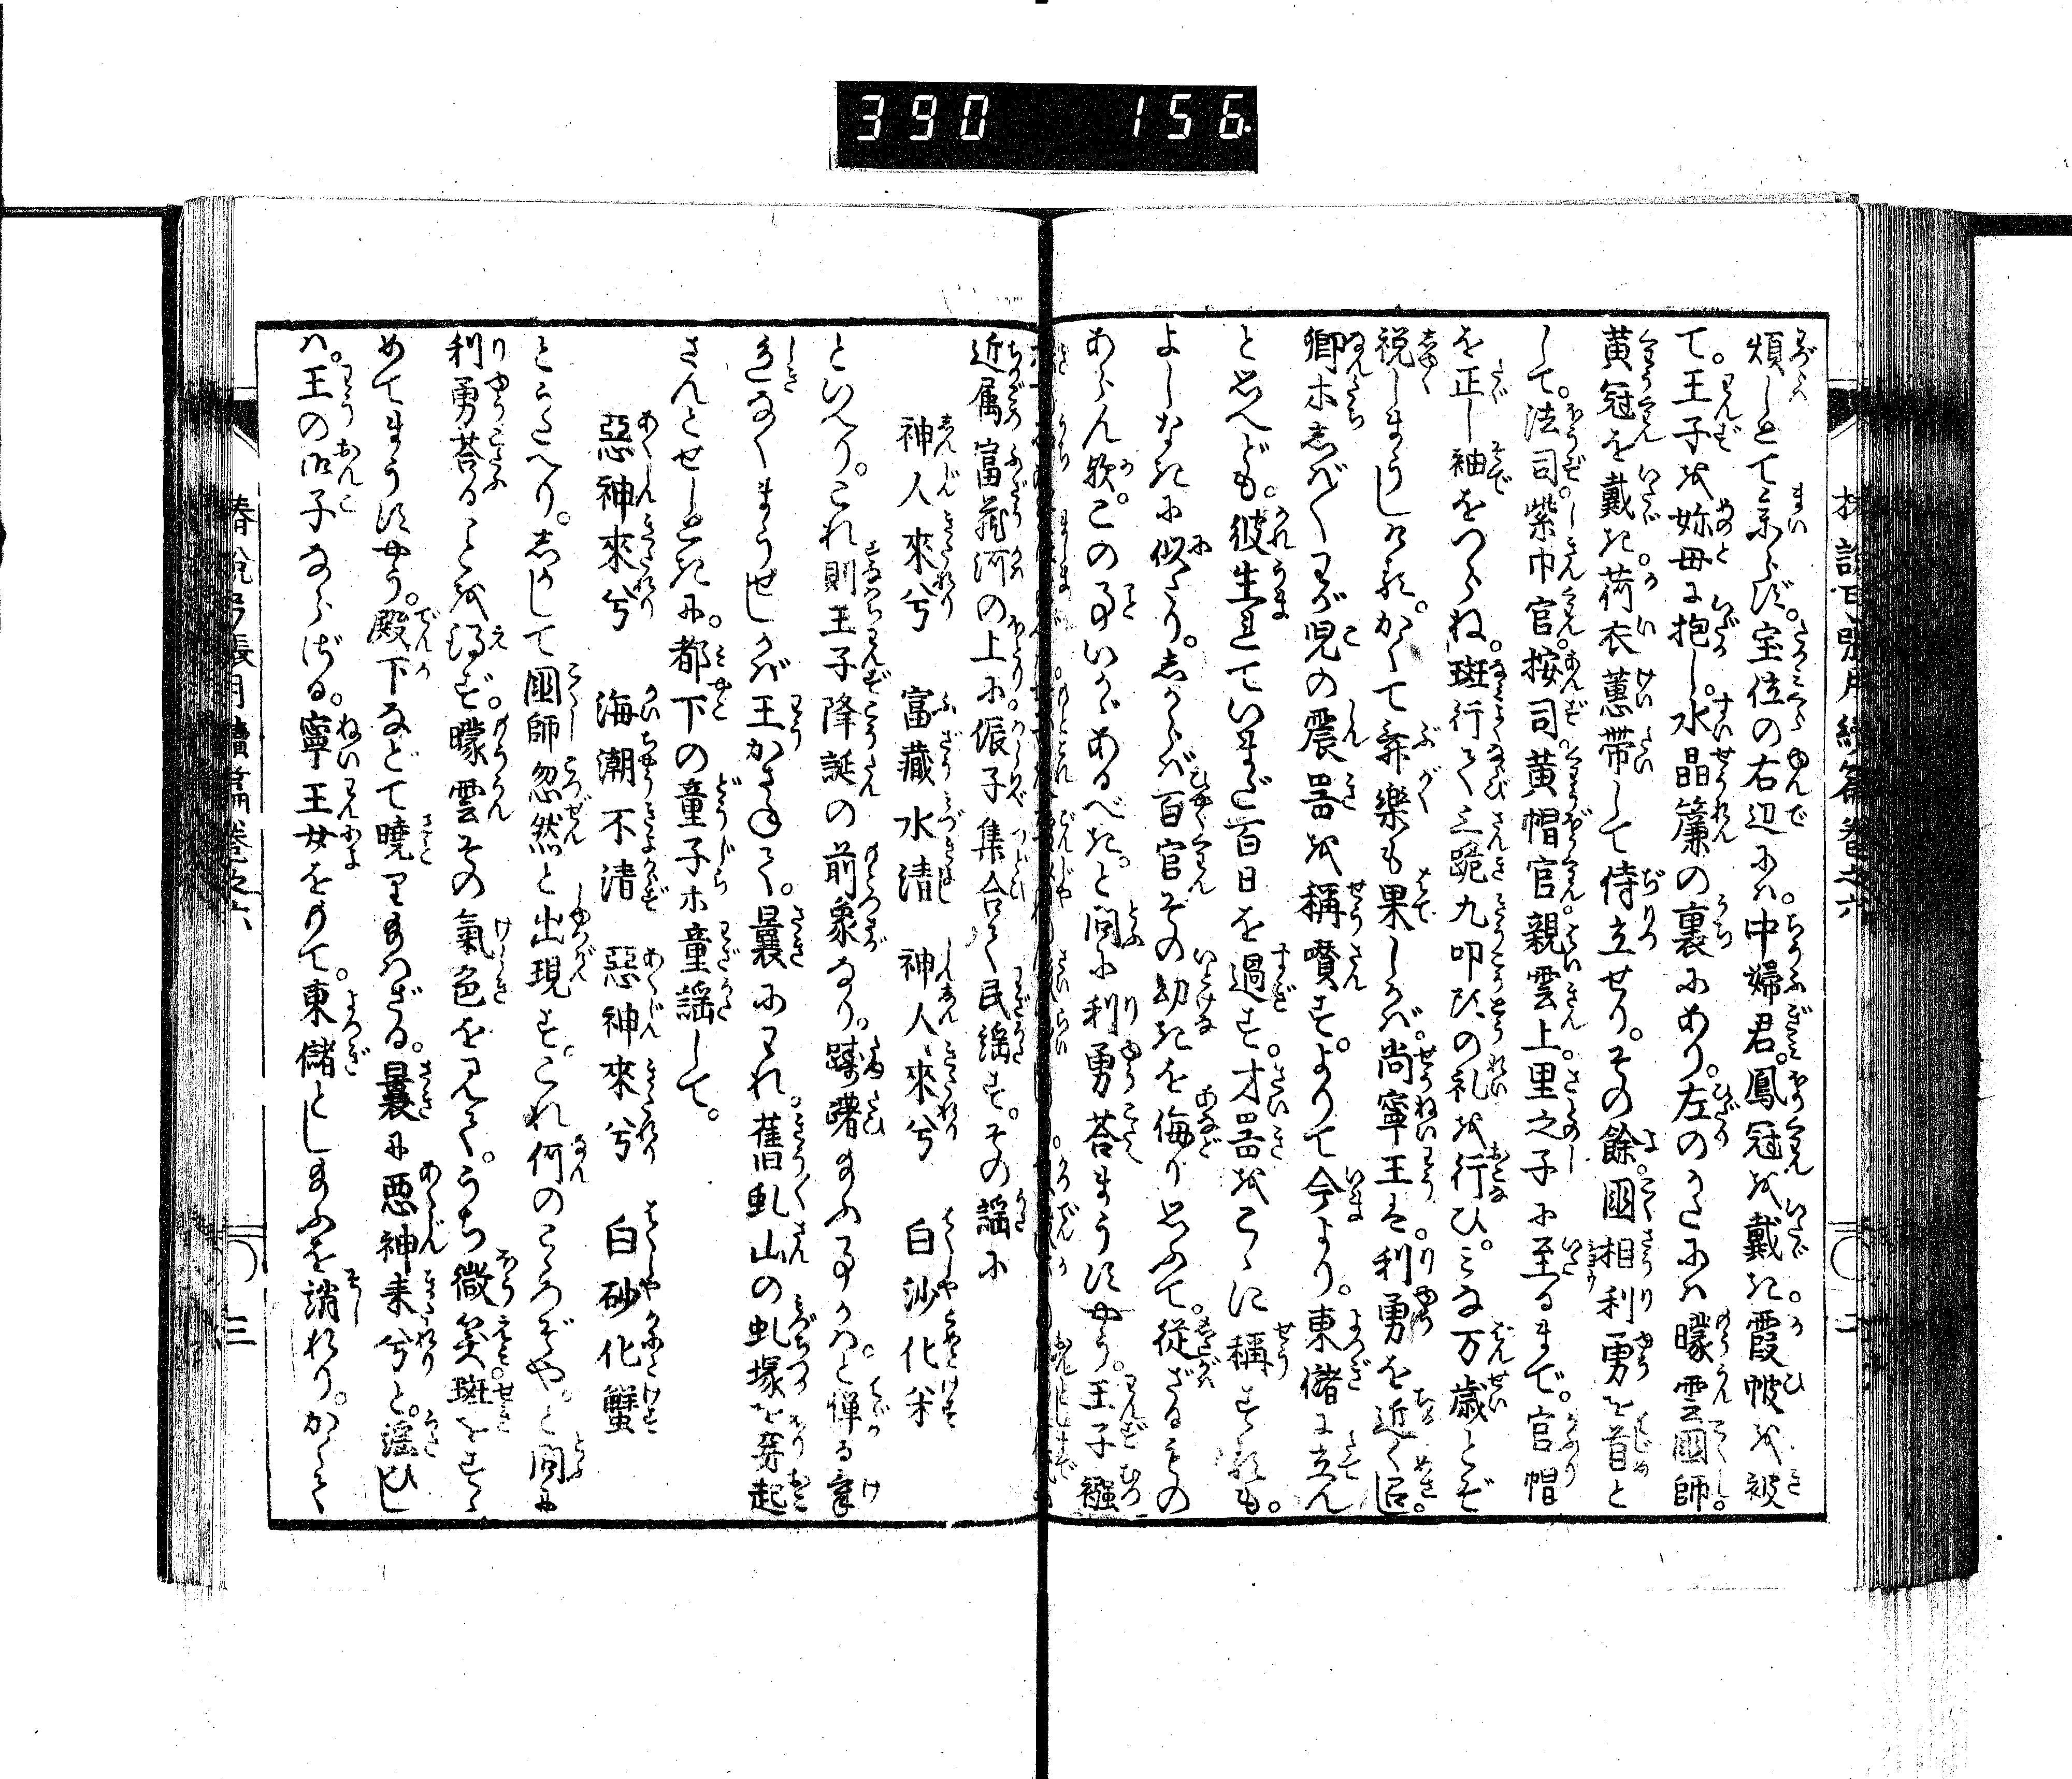 390 156
煩しとて来らず。宝位の右辺には。中婦君。鳳冠を戴き。霞帔を被
て。王子を妳母に抱し。水晶簾の裏にあり。左のかたには曚雲國師。
黄冠を戴き。荷衣蕙帯して侍立せり。その餘。國相利勇を首と
して。法司紫巾官。按司黄帽官。親雲上。里之子に至るまで。官帽
を正し袖をつらね。班行て三跪九叩头の礼を行ひ。みな万歳とぞ
祝しまうしける。かくて舞樂も果しかば。尚寧王は。利勇を近く召。
卿ホしば〳〵わが児の震器を稱嘆す。よりて今より。東儲に立ん
と思へども。彼生れていまだ百日を過ず。才器をこゝに稱すれども。
よしなきに似たり。しからば百官その幼きを侮り思ふて。従ざるもの
あらん欤。この事いかゞあるべき。と問に利勇荅まうすやう。王子襁
近属富蔵河の上に侲子集合て民謡す。その謡に
神人來兮 富藏水清 神人來兮 白沙化米
といへり。これ則王子降誕の前象なり。躊躇まふ事かは。と憚る氣
色なくまうせしかば王かさねて。曩にわれ。舊虬山の虬塚を穿起
さんとせしときに。都下の童子ホ童謡して。
惡神來兮 海潮不清 惡神來兮 白砂化蟹
とうたへり。しかして國師忽然と出現す。これ何のこゝろぞや。と問に
利勇荅ることを得ず。曚雲その氣色を見て。うち微笑班をすゝ
めてまうすやう。殿下などて曉りまはざる。曩に悪神来兮と。謡ひし
は。王の御子ならざる。寧王女をもて。東儲としまふを誚れり。かくて
椿説弓張月續編卷之六 三